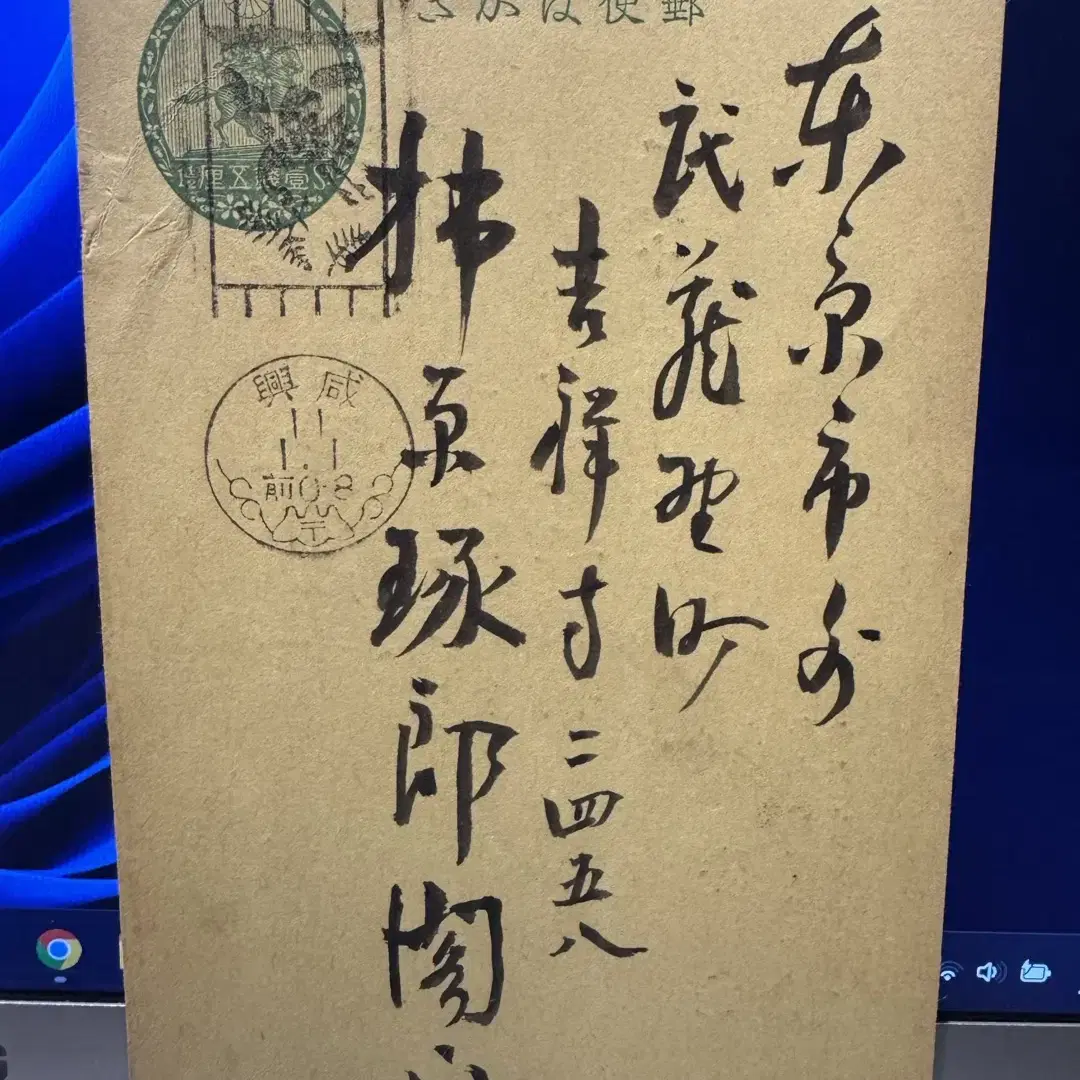 郵便はがき
東京市外
武蔵野町
吉祥寺二四五八
林原琢郎閣下
壹錢五厘
咸興
11
1.1
前0-8